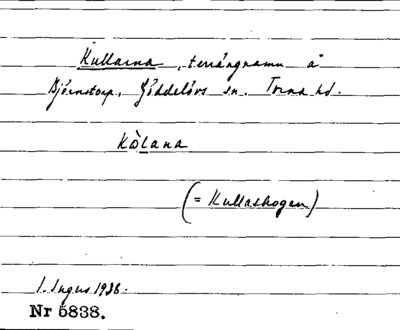 Kullarna, terrängnamn å
Björnstorp, Gödelövs sn. Torna hd.
Kòlana
(= Kullaskogen)
I. Ingers 1938.
Nr 5838.